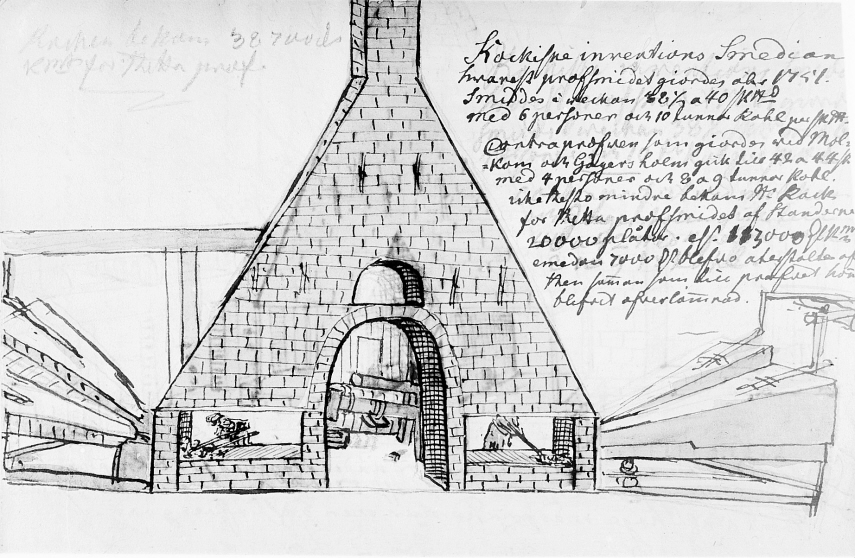 Kockiske inventions Smedian
hwarest profsmidet giordes åhr 1751.
Smiddes i weckan 38½ a 40 Sk℔
med 6 personer och 10 tunnor Kohl per Sk℔.
Contraprofwen som giordes wid Mol-
-kom och Geijersholm gick till 42 a 44 Sk
med 4 personer och 8 a 9 tunnor Kohl.
icke thesto mindre bekom Hr Kock
for thetta profsmidet af Standerne
20000 plåtar. ell. 117,000
emedan 7000 blefwo
then som till profwet
blefwit afwerlämnad.
Kocken bekom 38700
for thetta prof.